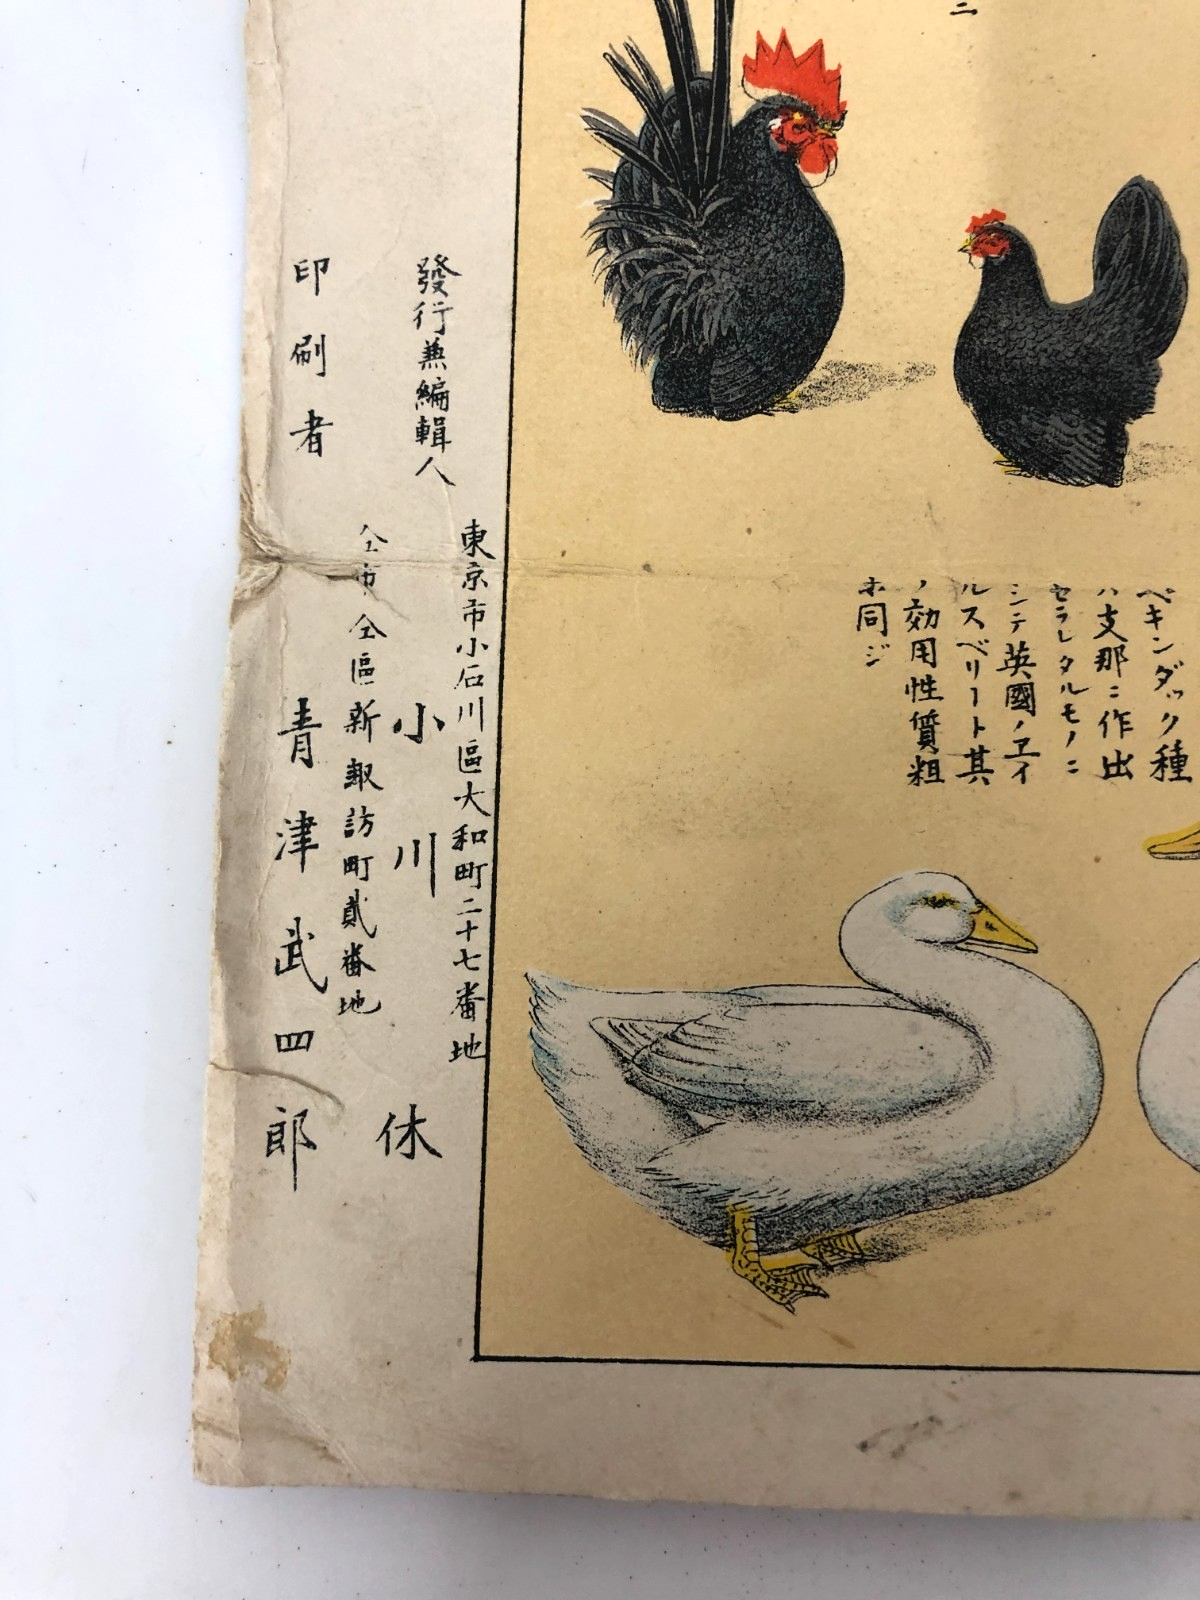 ニ
ペキンダック種
ハ支那ニ作出
セラレタルモノニ
シテ英國ノエイ
ルスベリート其
ノ効用性質粗
ホ同ジ
發行兼編輯人
東京市小石川區大和町二十七番地
小川休
印刷者
仝市仝區新諏訪町貳番地
青津武四郎